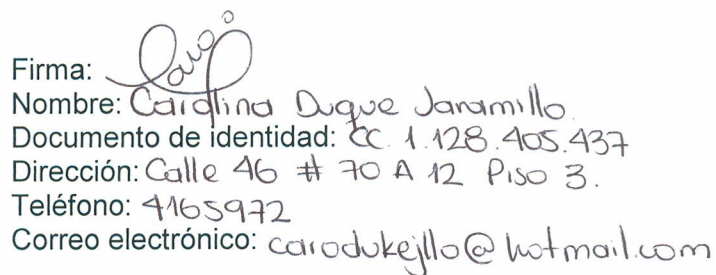 Firma: Caro
Nombre: Carolina Duque Jaramillo
Documento de identidad: CC. 1.128.405.437
Dirección: Calle 46 # 70 A 12 Piso 3.
Teléfono: 4165972
Correo electrónico: carodukejllo@hotmail.com